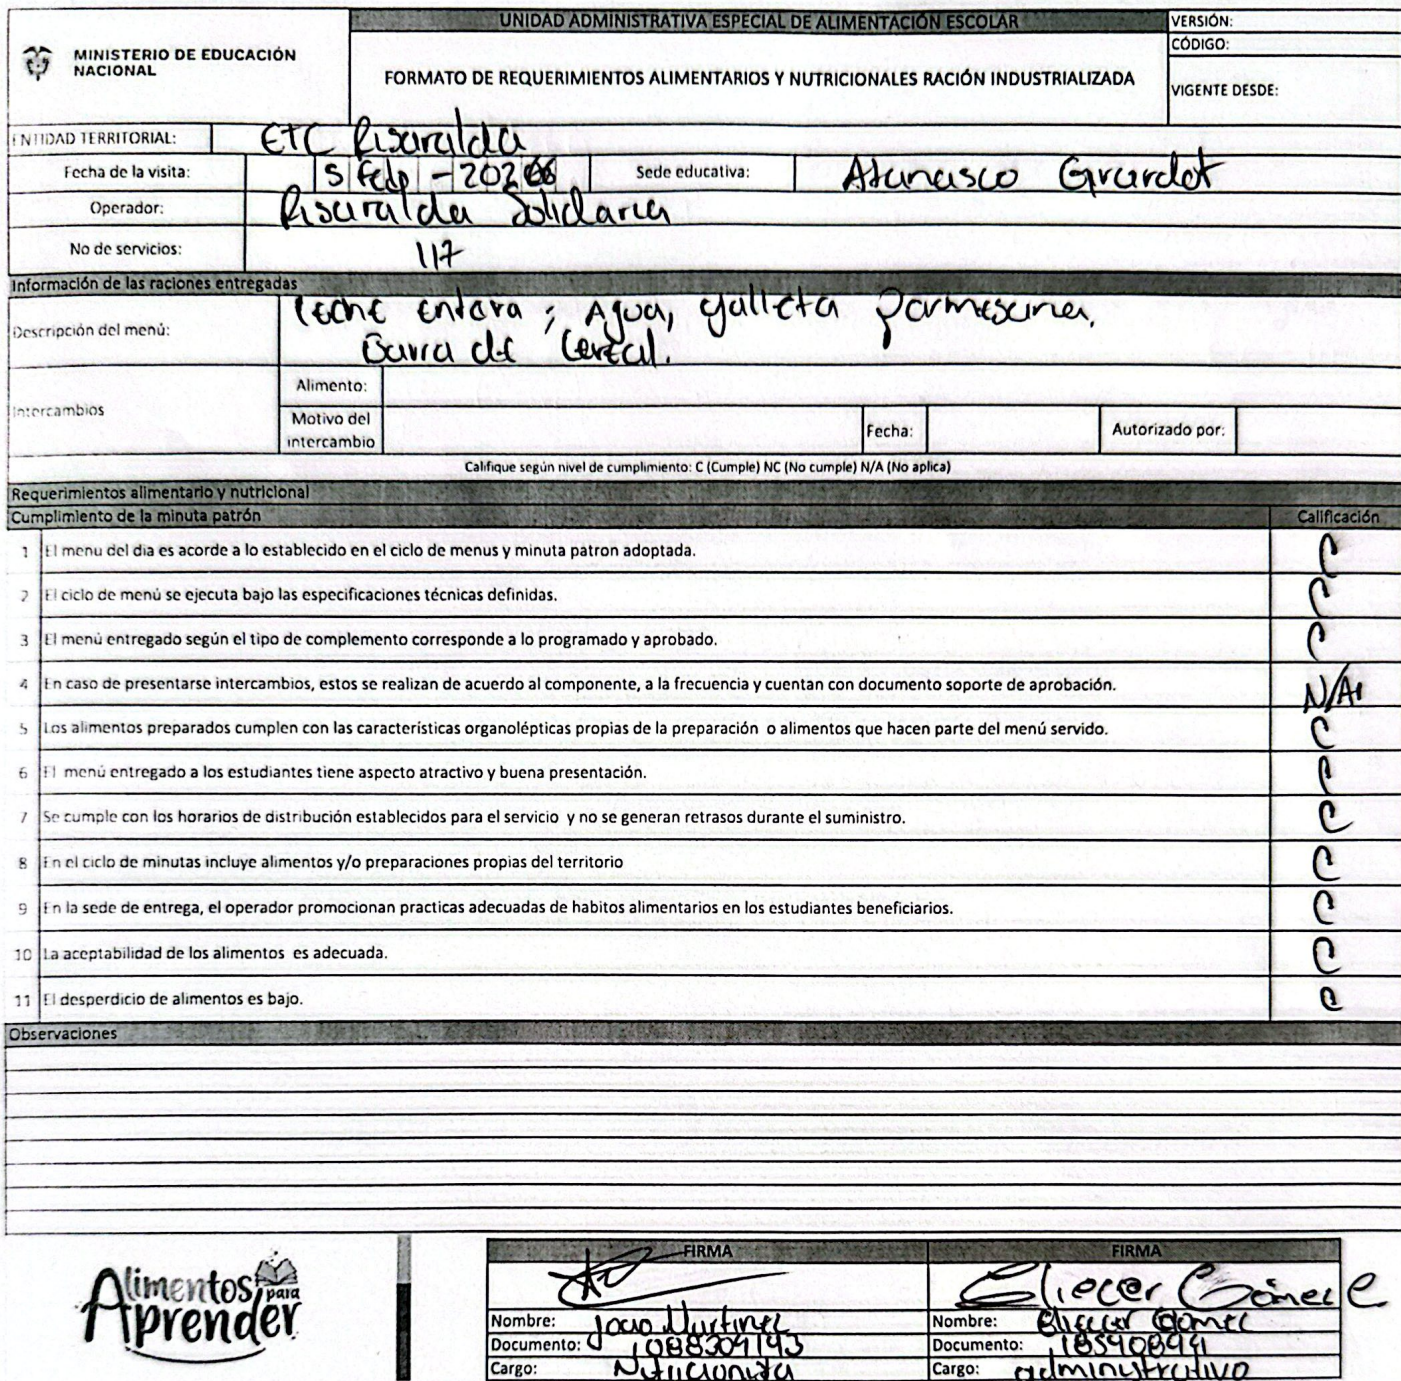 MINISTERIO DE EDUCACIÓN
NACIONAL
UNIDAD ADMINISTRATIVA ESPECIAL DE ALIMENTACIÓN ESCOLAR
FORMATO DE REQUERIMIENTOS ALIMENTARIOS Y NUTRICIONALES RACIÓN INDUSTRIALIZADA
VERSIÓN:
CÓDIGO:
VIGENTE DESDE:
ENTIDAD TERRITORIAL: ETC Risaralda
Fecha de la visita: 5 Feb - 2026 Sede educativa: Atanasco Girardot
Operador: Risaralda Solidaria
No de servicios: 117
Información de las raciones entregadas
Descripción del menú: Leche entera; Agua, galleta parmesana,
Barra de Cereal.
Intercambios
Alimento:
Motivo del
intercambio
Fecha: Autorizado por:
Califique según nivel de cumplimiento: C (Cumple) NC (No cumple) N/A (No aplica)
Requerimientos alimentario y nutricional
Cumplimiento de la minuta patrón Calificación
1 El menu del dia es acorde a lo establecido en el ciclo de menus y minuta patron adoptada. C
2 El ciclo de menú se ejecuta bajo las especificaciones técnicas definidas. C
3 El menú entregado según el tipo de complemento corresponde a lo programado y aprobado. C
4 En caso de presentarse intercambios, estos se realizan de acuerdo al componente, a la frecuencia y cuentan con documento soporte de aprobación. N/A
5 Los alimentos preparados cumplen con las características organolépticas propias de la preparación o alimentos que hacen parte del menú servido. C
6 El menú entregado a los estudiantes tiene aspecto atractivo y buena presentación. C
7 Se cumple con los horarios de distribución establecidos para el servicio y no se generan retrasos durante el suministro. C
8 En el ciclo de minutas incluye alimentos y/o preparaciones propias del territorio C
9 En la sede de entrega, el operador promocionan practicas adecuadas de habitos alimentarios en los estudiantes beneficiarios. C
10 La aceptabilidad de los alimentos es adecuada. C
11 El desperdicio de alimentos es bajo. C
Observaciones
Alimentos para
Aprender
FIRMA
Nombre: Joao Martinez
Documento: 1088309193
Cargo: Nutricionista
FIRMA
Eliecer Gómez
Nombre: Eliecer Gómez
Documento: 18590894
Cargo: administrativo